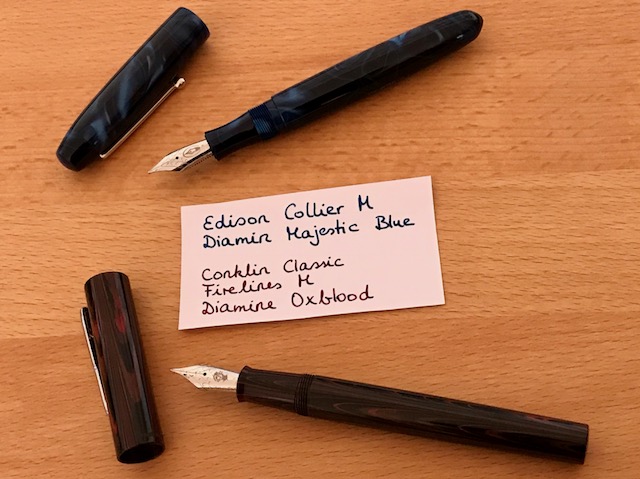 Edison Collier M
Diamin Majestic Blue
Conklin Classic
Firelines M
Diamine Oxblood